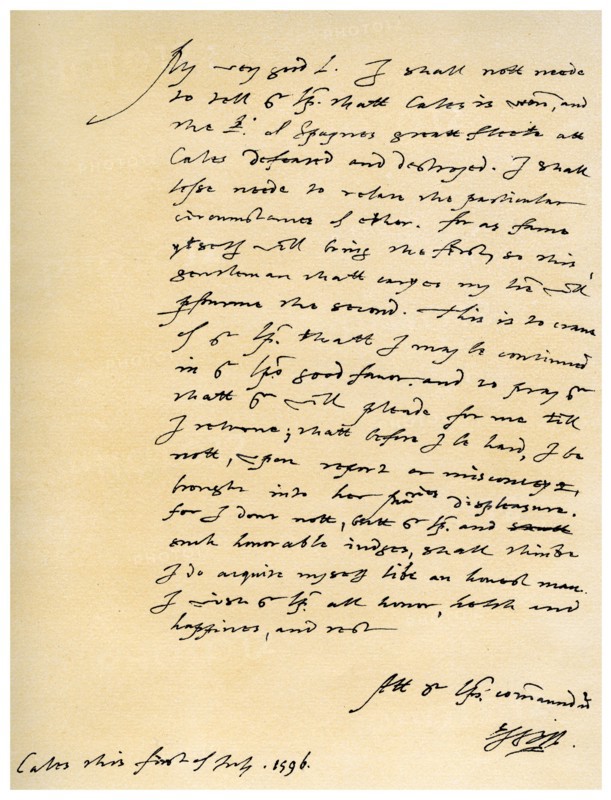 My very good L. I shall nott neede
to tell yr Lp. thatt Cales is wonn, and
the K: of Spaynes great fleete att
Cales defeated and destroyed. I shall
lesse neede to relate the particular
circumstances of ether. for as fame
ytself will bring the first, so this
gentleman thatt caryes my lre will
pfourme the second. This is to crave
of yr Lp. thatt I may be continued
in yr Lps good favor. and to pray yr
thatt yr will pleade for me till
I retorne; thatt before I be hard, I be
nott, upon report or misconceyt,
brought into her maties displeasure.
for I dout nott, butt yr Lp. and
such honorable iudges, shall thinke
I do acquite myself like an honest man.
I wish yr Lp. all honor, helth and
happines, and rest
Att yr Lps. comaundt
Cales this first of July. 1596.